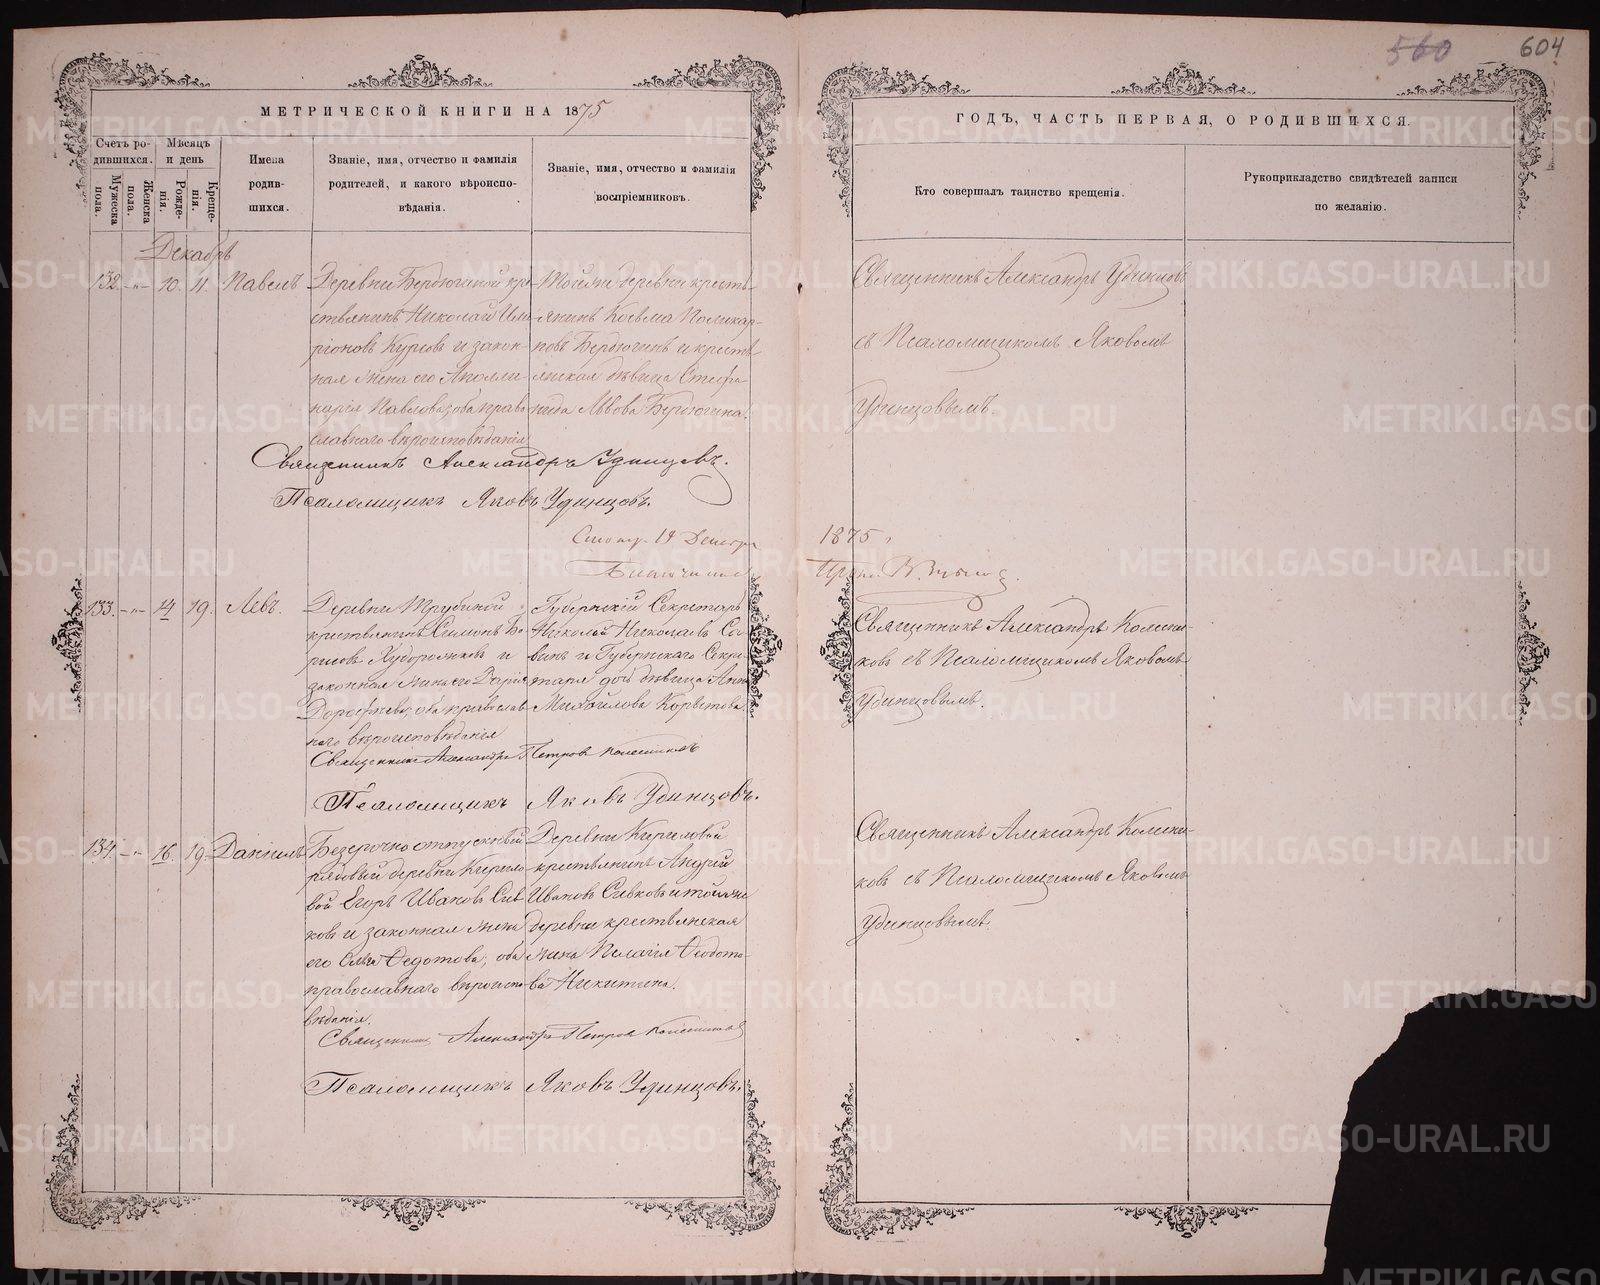 560 604
МЕТРИЧЕСКОЙ КНИГИ НА 1875
ГОДЪ, ЧАСТЬ ПЕРВАЯ, О РОДИВШИХСЯ.
Счетъ ро-
дившихся.
Мужеска
пола.
Женска
пола.
Мѣсяцъ
и день
Рожде-
нія.
Креще-
нія.
Имена
родив-
шихся.
Званіе, имя, отчество и фамилія
родителей, и какого вѣроиспо-
вѣданія.
Званіе, имя, отчество и фамилія
воспріемниковъ.
Кто совершалъ таинство крещенія.
Рукоприкладство свидѣтелей записи
по желанію.
Декабрь
132. -"- 10. 11. Павелъ
Деревни Бердюгиной кре-
стьянинъ Николай Или-
ріоновъ Куровъ и закон-
ная жена его Аполли-
нарія Павлова, оба право-
славнаго вѣроисповѣданія
Тойже деревни кресть-
янинъ Косьма Поликар-
повъ Бердюгинъ и кресть-
янская дѣвица Стефа-
нида Львова Бердюгина.
Священникъ Александръ Удинцовъ
съ Псаломщикомъ Яковомъ
Удинцовымъ.
Священникъ Александръ Удинцевъ.
Псаломщикъ Яковъ Удинцовъ.
19 Декабря 1875
133. -"- 14 19. Левъ.
Деревни Трубиной
крестьянинъ Симонъ Бо-
рисовъ Худорожковъ и
законная жена его Дарія
Дорофеева, оба православ-
наго вѣроисповѣданія
Губернскій Секретарь
Николай Николаевъ Са-
винъ и Губернскаго Секре-
таря дочь дѣвица Анна
Михайлова
Священникъ Александръ Колесни-
ковъ съ Псаломщикомъ Яковомъ
Удинцовымъ.
Священникъ Александръ Петровъ Колесниковъ
Псаломщикъ Яковъ Удинцовъ.
134. -"- 16. 19. Даніилъ
Безсрочно отпускной
рядовой деревни Киргило-
вой Егоръ Ивановъ Сив-
ковъ и законная жена
его Ольга Федотова, оба
православнаго вѣроиспо-
вѣданія.
Деревни Киргиловой
крестьянинъ Андрей
Ивановъ Сивковъ и тойже
деревни крестьянская
жена Пелагія Феодото-
ва Никитина.
Священникъ Александръ Колесни-
ковъ съ Псаломщикомъ Яковомъ
Удинцовымъ.
Священникъ Александръ Петровъ Колесниковъ
Псаломщикъ Яковъ Удинцовъ.
METRIKI.GASO-URAL.RU